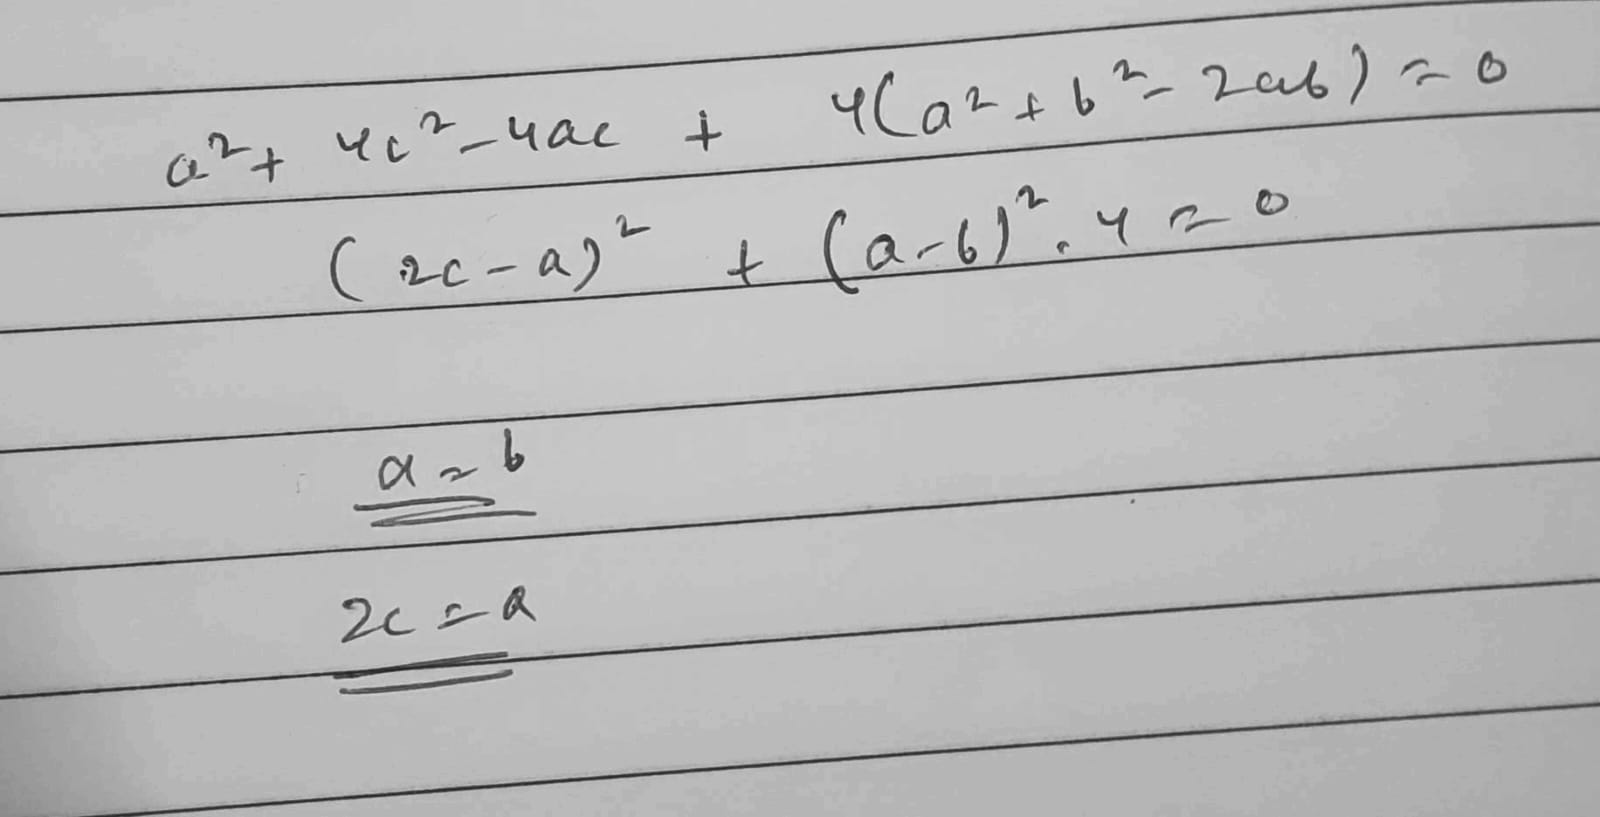 a² + 4c² - 4ac + 4(a² + b² - 2ab) = 0
(2c - a)² + (a - b)² . 4 = 0
a = b
2c = a